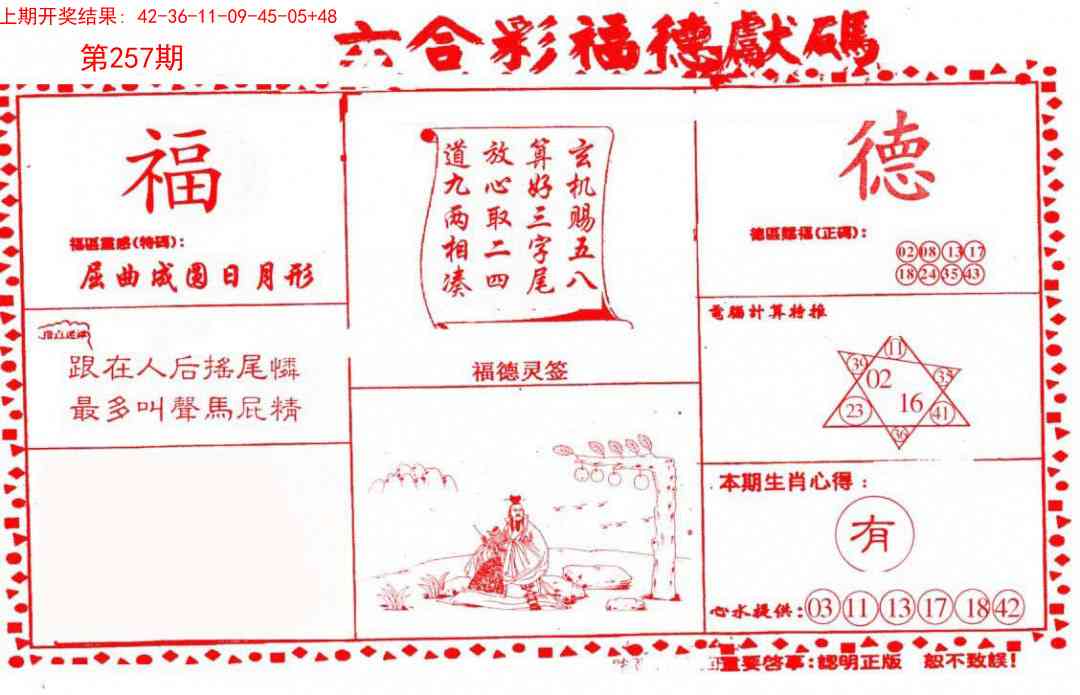 上期开奖结果: 42-36-11-09-45-05+48
第257期
六合彩福德獻碼
福
福區靈感(特碼):
屈曲成圆日月形
跟在人后搖尾憐
最多叫聲馬屁精
玄机赐五八
算好三字尾
放心取二四
道九两相凑
福德灵签
德
德區賜福(正碼):
02 08 13 17
18 24 35 43
電腦計算特推
11
39 02 35
23 16 41
36
本期生肖心得:
有
心水提供:03 11 13 17 18 42
重要啓事:認明正版 恕不致誤!